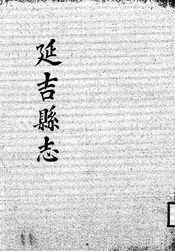 延吉縣志